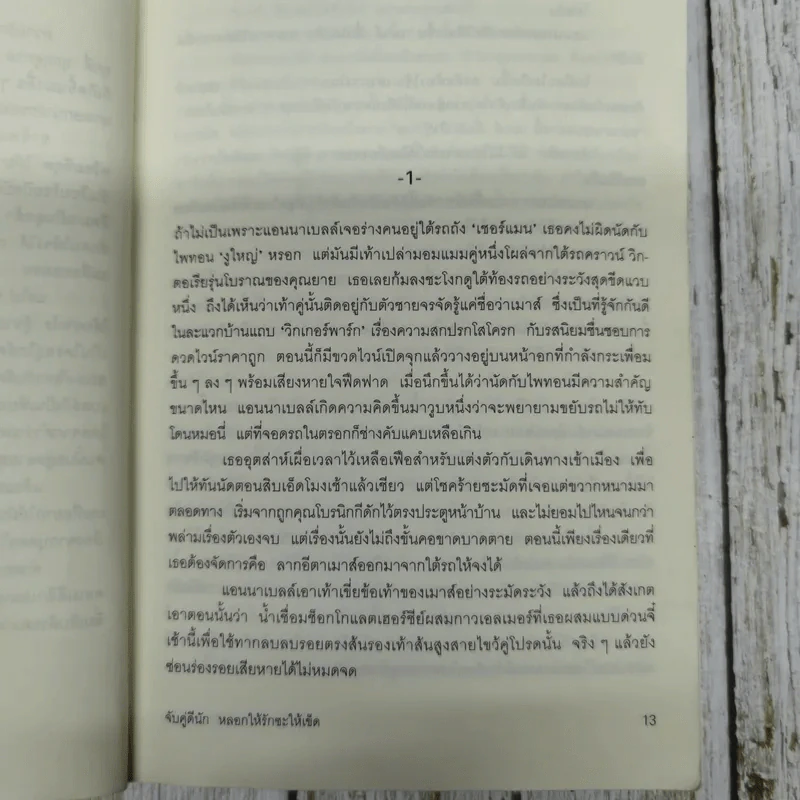 -1-
ถ้าไม่เป็นเพราะแอนนาเบลล์เจอร่างคนอยู่ใต้รถถัง ‘เชอร์แมน’ เธอคงไม่ผิดนัดกับ
ไพทอน ‘งูใหญ่’ หรอก แต่มันมีเท้าเปล่ามอมแมมคู่หนึ่งโผล่จากใต้รถคราวน์ วิก-
ตอเรียรุ่นโบราณของคุณยาย เธอเลยก้มลงชะโงกดูใต้ท้องรถอย่างระวังสุดขีดแวบ
หนึ่ง ถึงได้เห็นว่าเท้าคู่นั้นติดอยู่กับตัวชายจรจัดรู้แค่ชื่อว่าเมาส์ ซึ่งเป็นที่รู้จักกันดี
ในละแวกบ้านแถบ ‘วิกเกอร์พาร์ก’ เรื่องความสกปรกโสโครก กับรสนิยมชื่นชอบการ
ดวดไวน์ราคาถูก ตอนนี้ก็มีขวดไวน์เปิดจุกแล้ววางอยู่บนหน้าอกที่กำลังกระเพื่อม
ขึ้น ๆ ลง ๆ พร้อมเสียงหายใจฟืดฟาด เมื่อนึกขึ้นได้ว่านัดกับไพทอนมีความสำคัญ
ขนาดไหน แอนนาเบลล์เกิดความคิดขึ้นมาวูบหนึ่งว่าจะพยายามขยับรถไม่ให้ทับ
โดนหมอนี่ แต่ที่จอดรถในตรอกก็ช่างคับแคบเหลือเกิน
เธออุตส่าห์เผื่อเวลาไว้เหลือเฟือสำหรับแต่งตัวกับเดินทางเข้าเมือง เพื่อ
ไปให้ทันนัดตอนสิบเอ็ดโมงเช้าแล้วเชียว แต่โชคร้ายชะมัดที่เจอแต่ขวากหนามมา
ตลอดทาง เริ่มจากถูกคุณโบรนิกกีดักไว้ตรงประตูหน้าบ้าน และไม่ยอมไปไหนจนกว่า
พล่ามเรื่องตัวเองจบ แต่เรื่องนั้นยังไม่ถึงขั้นคอขาดบาดตาย ตอนนี้เพียงเรื่องเดียวที่
เธอต้องจัดการคือ ลากอีตาเมาส์ออกมาจากใต้รถให้จงได้
แอนนาเบลล์เอาเท้าเขี่ยข้อเท้าของเมาส์อย่างระมัดระวัง แล้วถึงได้สังเกต
เอาตอนนั้นว่า น้ำเชื่อมช็อกโกแลตเฮอร์ชีย์ผสมกาวเอลเมอร์ที่เธอผสมแบบด่วนจี๋
เช้านี้เพื่อใช้ทากลบลบรอยตรงส้นรองเท้าส้นสูงสายไขว้คู่โปรดนั้น จริง ๆ แล้วยัง
ซ่อนร่องรอยเสียหายได้ไม่หมดจด
จับคู่ดีนัก หลอกให้รักซะให้เข็ด 13